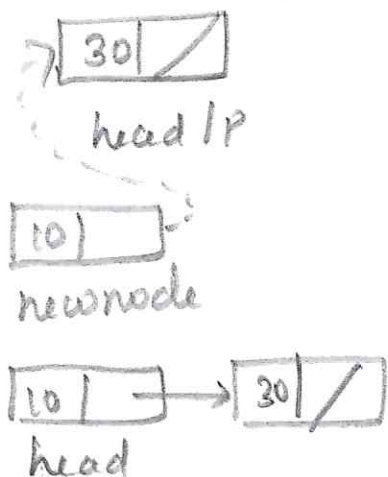 30
head/P
10
newnode
10 30
head